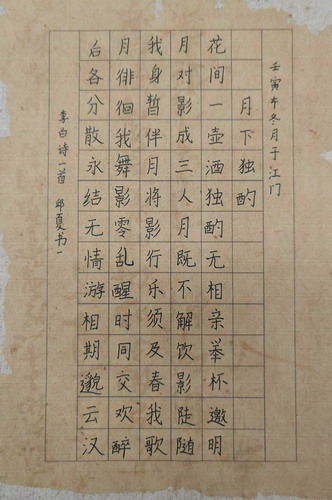 壬寅年冬月于江门
月下独酌
花间一壶酒独酌无相亲举杯邀明
月对影成三人月既不解饮影陡随
我身暂伴月将影行乐须及春我歌
月徘徊我舞影零乱醒时同交欢醉
后各分散永结无情游相期邈云汉
李白诗一首 邱夏书